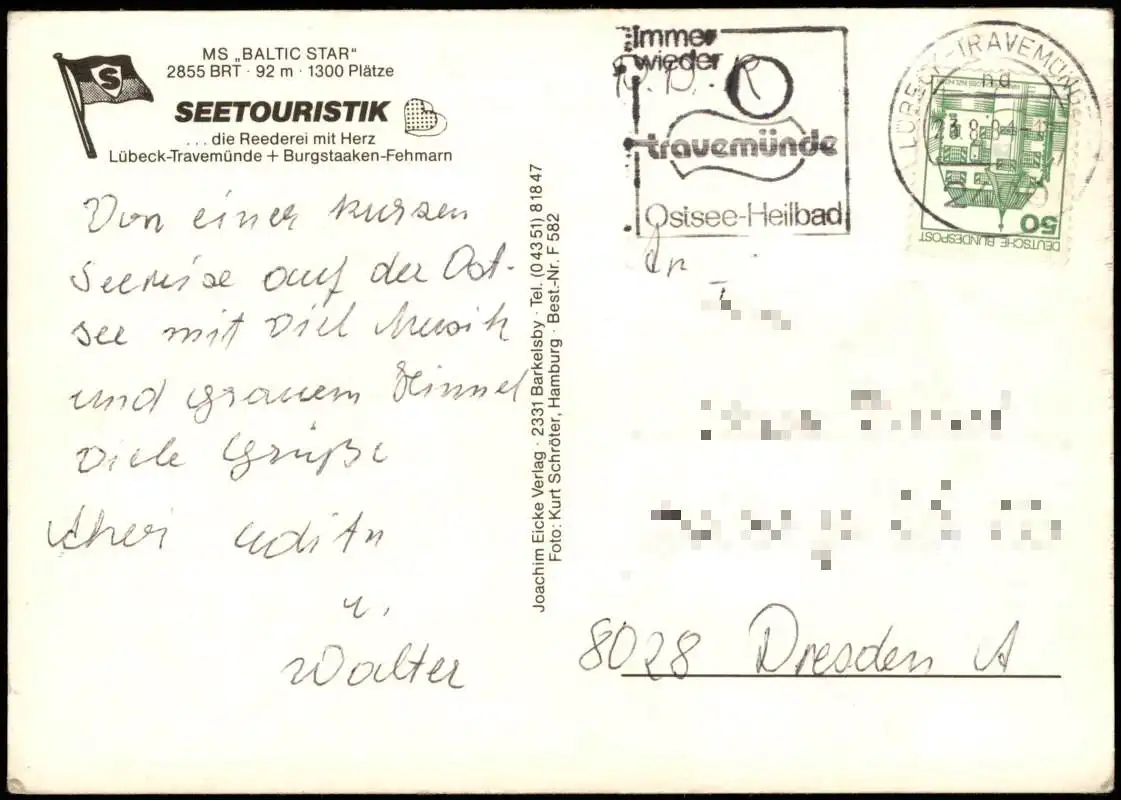 MS „BALTIC STAR“
2855 BRT · 92 m · 1300 Plätze
S
SEETOURISTIK
... die Reederei mit Herz
Lübeck-Travemünde + Burgstaaken-Fehmarn
Von einer kurzen
Seereise auf der Ost-
see mit viel Musik
und grauem Himmel
viele Grüße
Edith
u.
Walter
Joachim Eicke Verlag · 2331 Barkelsby · Tel. (0 43 51) 818 47
Foto: Kurt Schröter, Hamburg · Best.-Nr. F 582
Immer
wieder
travemünde
Ostsee-Heilbad
LÜBECK-TRAVEMÜNDE
nd
23.8.8
50
DEUTSCHE BUNDESPOST
8028 Dresden A